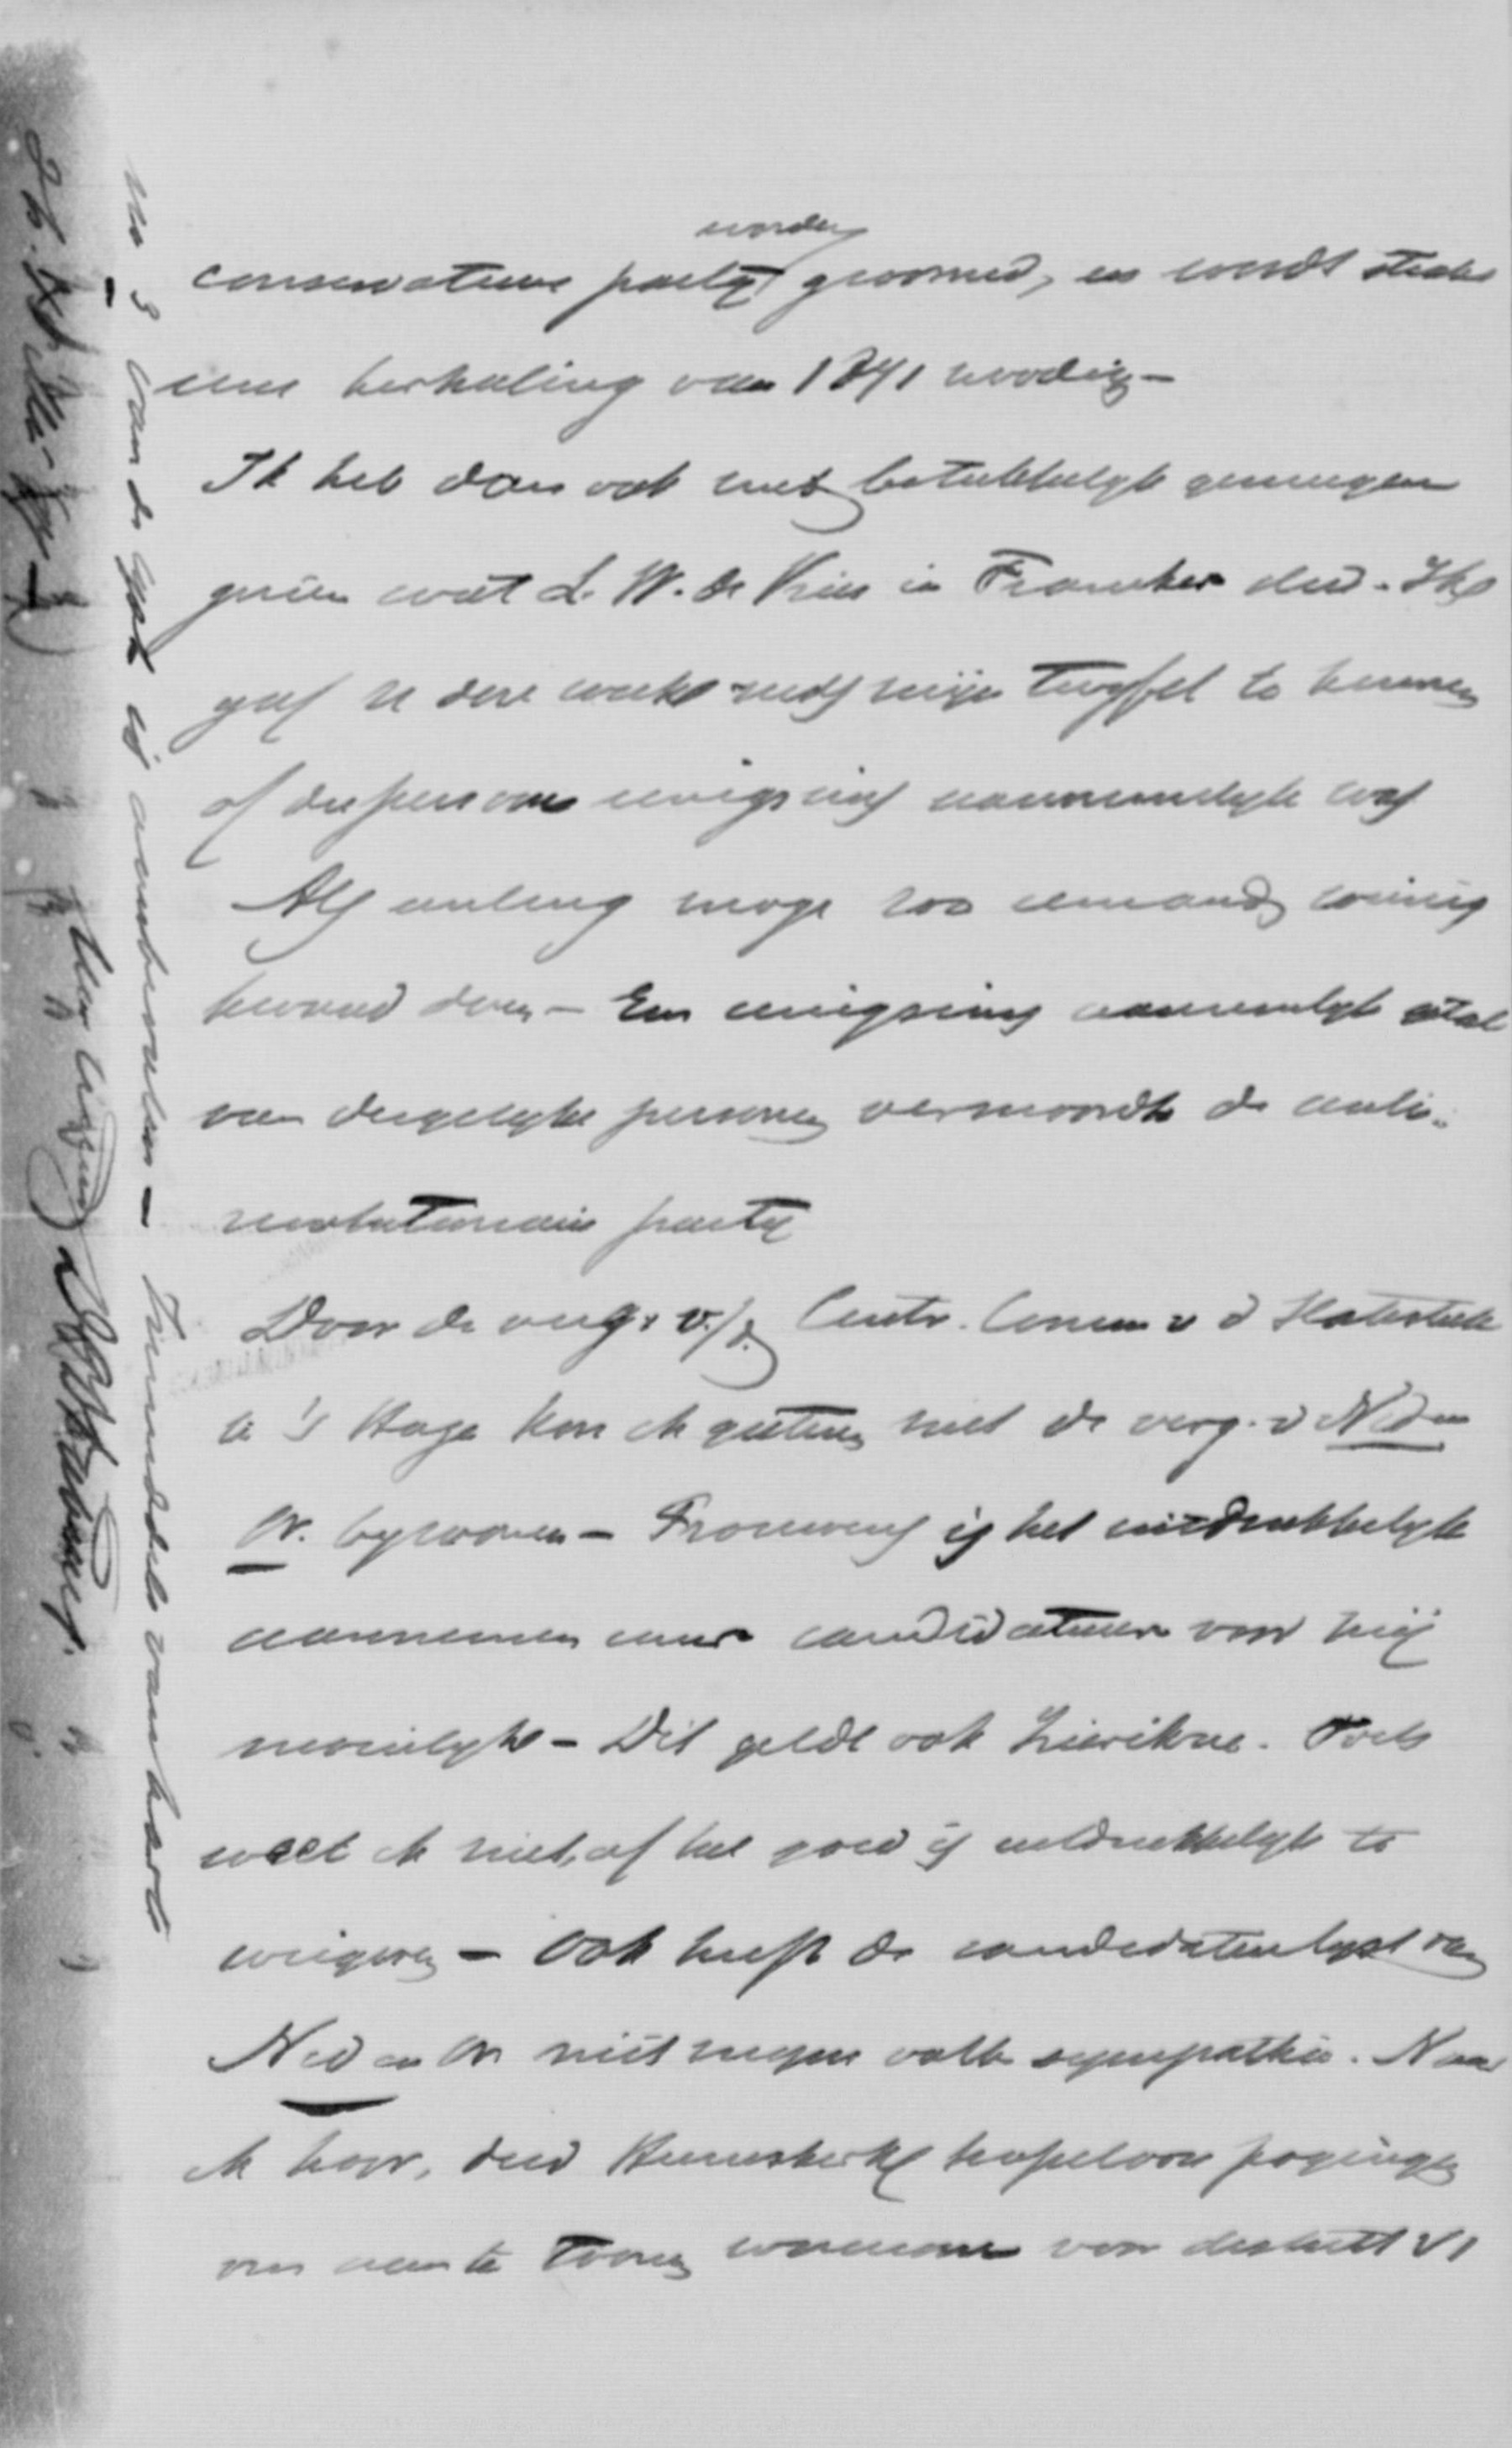 worden
conservatieve partij gevormd, en wordt steeds
eene herhaling van 1841 noodig –
Ik heb dan ook met betrekkelijk genoegen
gezien wat L. W. de Vries in Franeker deed. Ik
gaf U dezer weke reeds mijn twijfel te kennen
of die persoon enigszins aannemelijk was
Als eenling moge zoo iemand weinig
kwaad doen – Een enigszins aannemelijk getal
van dergelijke personen vermoordt de anti-
revolutionaire partij
Door de verg. v. d. Centr. Comm v d Statistiek
te 's Hage kon ik gisteren niet de verg. v Ned en
Or. bijwonen – Trouwens is het uitdrukkelijk
aannemen eener candidatuur voor mij
moeielijk – Dit geldt ook Zierikzee. Toch
weet ik niet, of het goed is uitdrukkelijk te
weigeren – Ook heeft de candidatenlijst van
Ned en Or niet mijne volle sympathie. Naar
ik hoor, deed Heemskerk hopelooze pogingen
om aan te toonen waarom voor district VI
No 3 van de lijst is aanbevolen – Inmiddels van harte